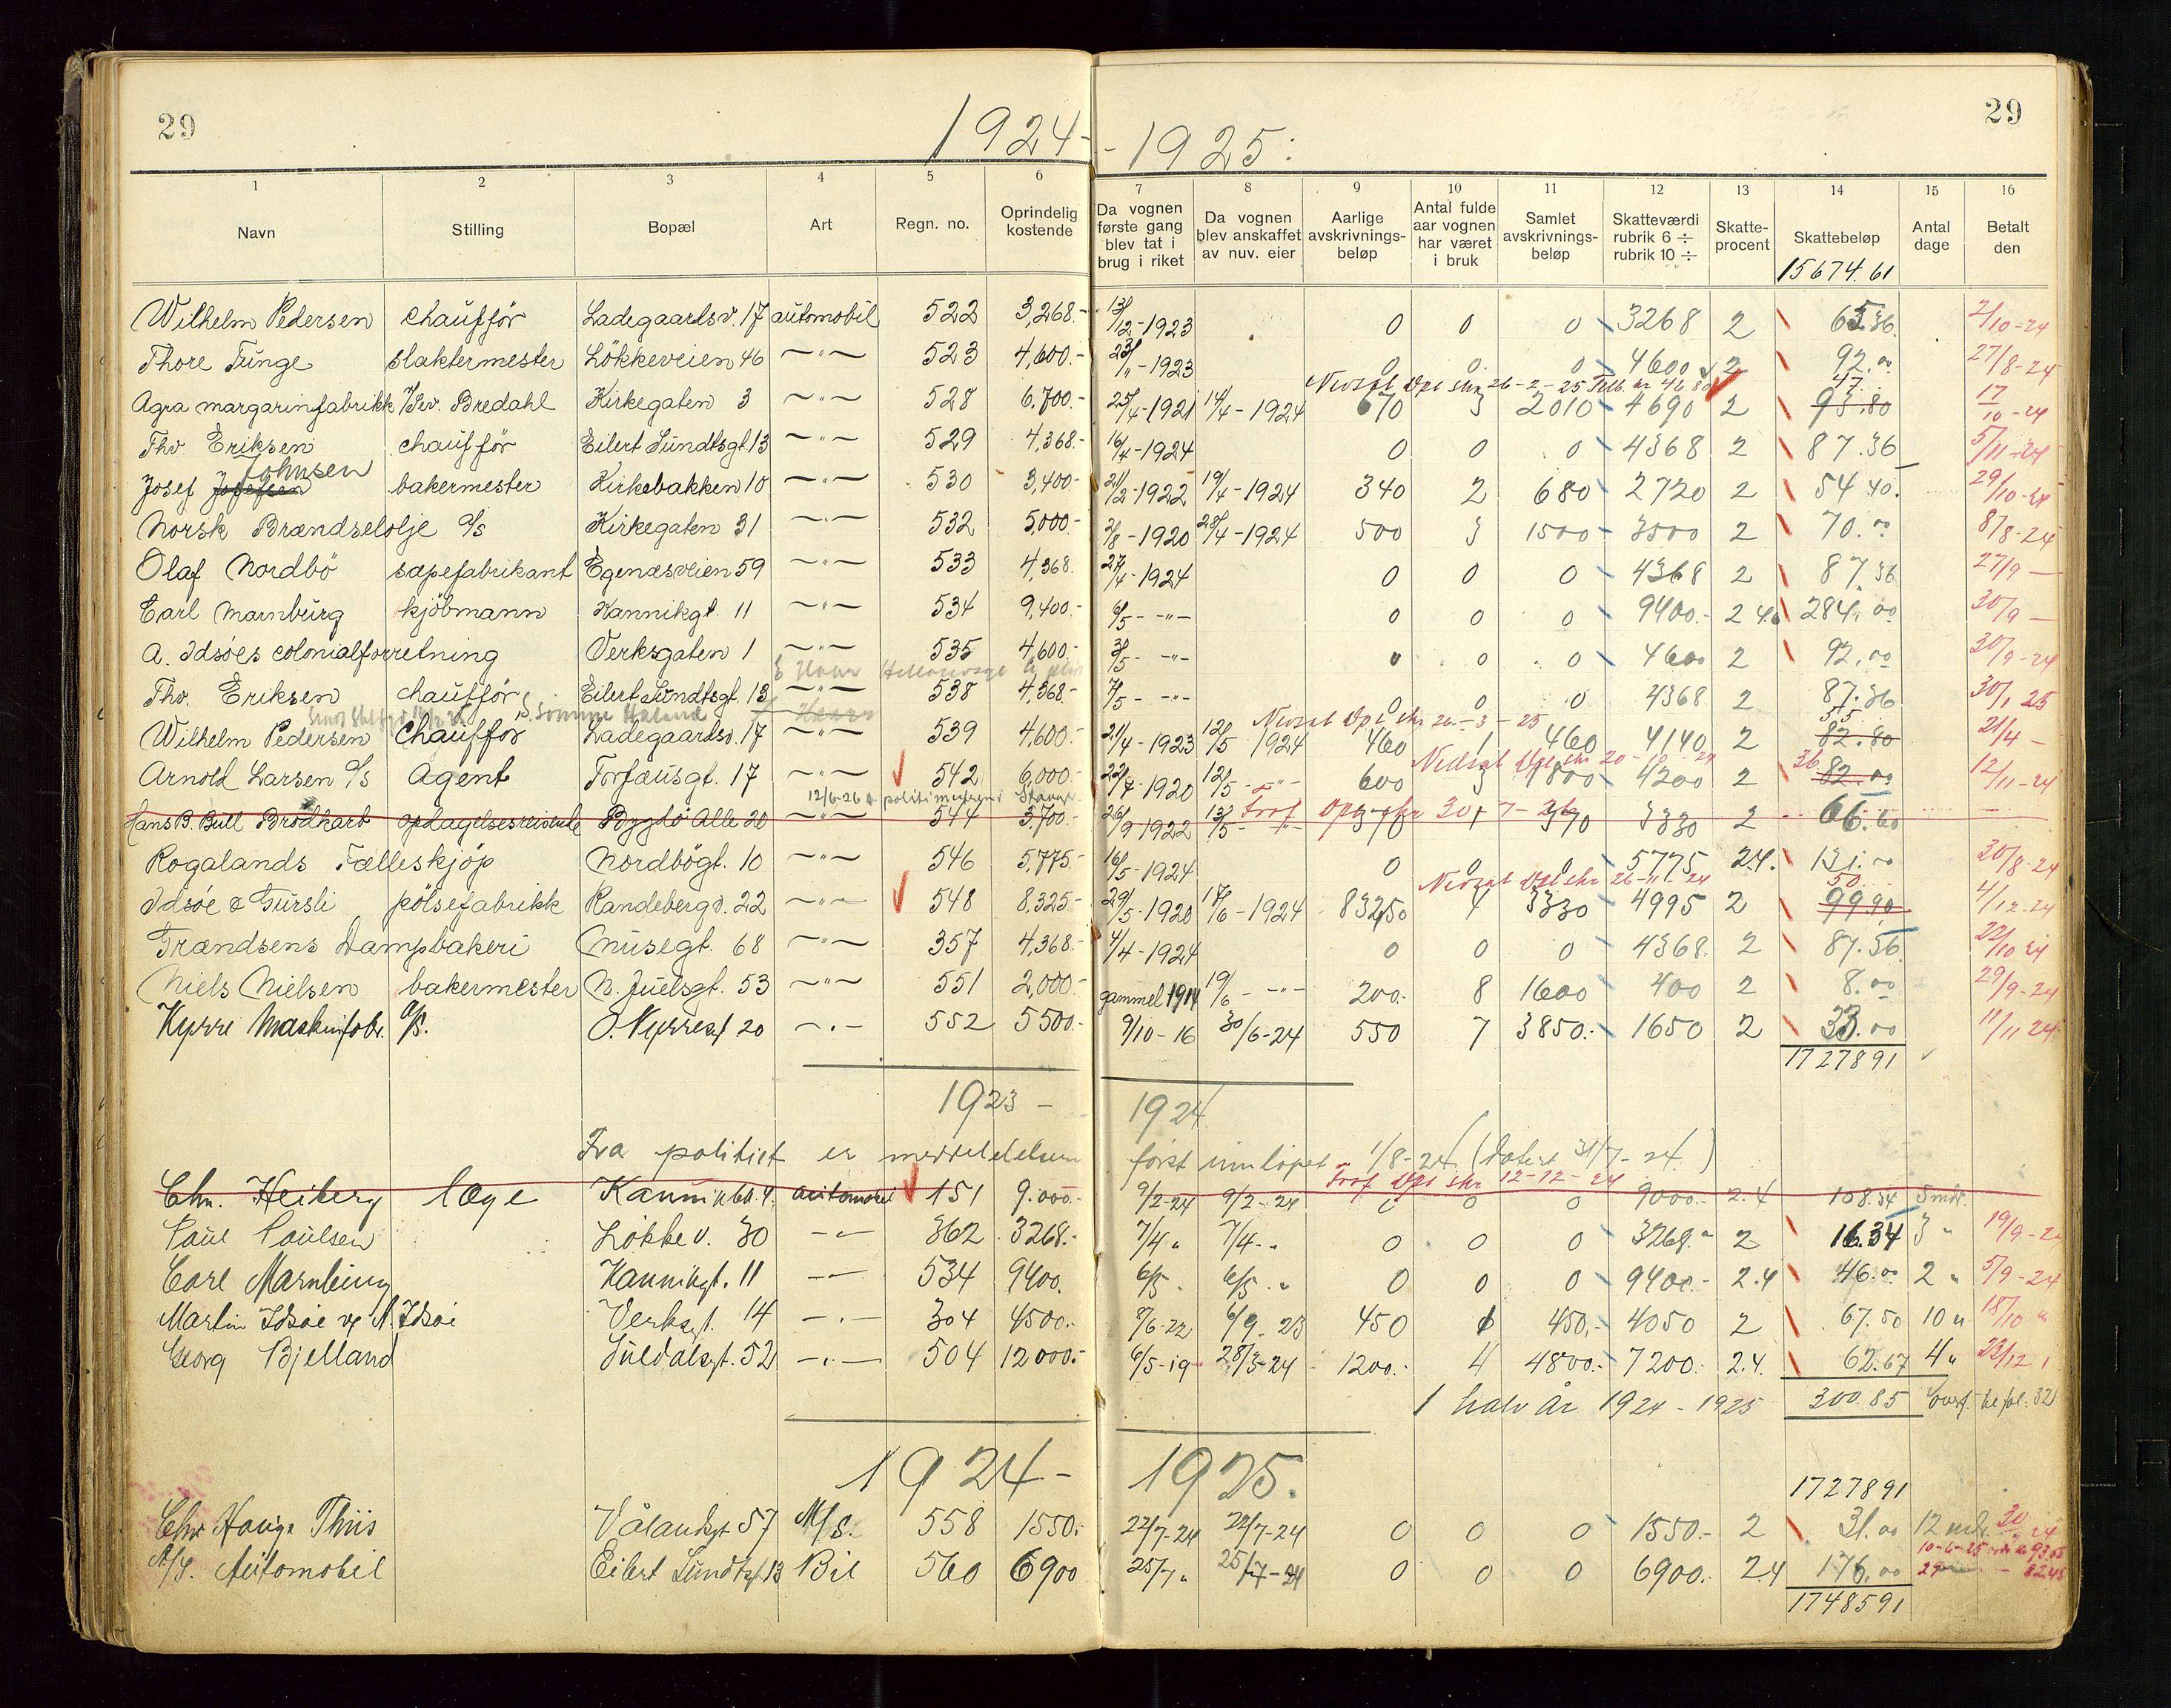 29
29
1924- -1925:
1 2 3 4 5 6 7 8 9 10 11 12 13 14 15 16
Navn Stilling Bopæl Art Regn. no. Oprindelig kostende Da vognen første gang blev tat i brug i riket Da vognen blev anskaffet av nuv. eier Aarlige avskrivnings-beløp Antal fulde aar vognen har været i bruk Samlet avskrivnings-beløp Skatteværdi rubrik 6 ÷ rubrik 10 ÷ Skatte-procent Skattebeløp Antal dage Betalt den
15674.61
Wilhelm Pedersen chaufför Ladegaardsv. 17 automobil 522 3,268.- 13/12-1923 0 0 0 3268 2 65.36 2/10-24
Thore Tunge slaktermester Lökkeveien 46 -"- 523 4,600.- 23/11-1923 0 0. 0 4600 2 92.00 27/8-24
Nedsat Opl skr 26-2-25 47.
Agra margarinfabrikk Bredahl Kirkegaten 3 -"- 528 6.700.- 25/4-1921 14/4-1924 670 3 2010 4690 2 93.80 17/10-24
Thv. Eriksen chaufför Eilert Sundtsgt. 13 -"- 529 4,368.- 16/4-1924 0 0 0 4368 2 87.36 5/11-24
Johnsen
Josef Josefsen bakermester Kirkebakken 10 -"- 530 3,400.- 21/2-1922 19/4-1924 340 2 680 2720 2 54.40. 29/10-24
Norsk Brændselolje a/s Kirkegaten 31 -"- 532 5,000.- 2/8-1920 28/4-1924 500 3 1500 3500 2 70.00 8/8-24
Olaf Nordbö sæpefabrikant Egenæsveien 59 -"- 533 4,368. 27/4-1924 0 0 0 4368 2 87.36 27/9 —
Carl Marnburg kjöbmann Kannikgt. 11 -"- 534 9,400.- 6/5- -"- 0 0 0 9400.- 2.4 284.00 30/9 —
A. Idsöes colonialforretning Verksgaten 1 -"- 535 4,600.- 3/5- -"- 0 0 0 4600 2 92.00 30/9-24
Thv. Eriksen chaufför Eilert Sundtsgt. 13 -"- 538 4,368- 7/5- -"- 0 0 0 4368 2 87.36 30/1 25
Nedsat Opl skr 26-3-25 55.
Wilhelm Pedersen Chaufför Ladegaardsv. 17 -"- 539 4,600.- 21/4-1923 12/5 1924 460 1 460 4140 2 82.80 21/4 -
Nedsat Opl skr 20-10-24 36
Arnold Larsen a/s Agent Torfæusgt. 17 -"- 542 6,000.- 22/7-1920 12/5- -"- 600 3 1800 4200 2 82.00 12/11-24
12/6-26 politimesteren i Stavgr.
Hans B. Bull Brodkorb opdagelsesreisende Bygdö Alle 20 -"- 544 3,700.- 26/9-1922 13/5- -"- 370 1 370 3330 2 66.60
Rogalands Fælleskjöp Nordbögt. 10 -"- 546 5,775- 16/5-1924 0 0 0 5775 2.4. 131.00 30/8-24
Nedsat Opl skr 26-11-24 50.
Idsöe & Gursli pölsefabrikk Randebergv. 22 -"- 548 8,325- 29/5-1920 17/6-1924 832,50 4 3330 4995 2 99.90 4/12-24
Trændsens Dampbakeri Musegt. 68 -"- 357 4,368.- 4/4-1924 0 0 0 4368. 2 87.36 22/10 24
Niels Nielsen bakermester N. Juelsgt. 53 -"- 551 2,000.- gammel 1914 19/6- -"- 200.- 8 1600 400 2 8.00 29/9-24
Kyrre Maskinfabr. a/s. O. Kyrresgt 20 -"- 552 5500.- 9/10-16 30/6-24 550 7 3850.- 1650 2 33.00 11/11 24
1727891
1923 - 1924
Fra politiet er meddelelsen först innlöpet 1/8-24. (datert 31/7-24.)
Frof. Opl skr 12-12-24
Chr. Heiberg læge Kannikbk. 4. automobil 151 9.000.- 9/2-24 9/2-24 0 0 0 9000.- 2.4 108.34 5 mdr.
Paul Paulsen Lökkev. 30 -"- 362 3268.- 7/4 " 7/4- " 0 0 0 3268. 2 16.34 3 " 19/9-24
Carl Marnburg Kannikgt. 11 -"- 534 9400. 6/5 " 6/5 " 0 0 0 9400.- 2.4 46.00 2 " 5/9-24
Martin Idsöe ve A. Idsöe Verksgt. 14 -"- 304 4500.- 8/6-22 6/9-23 450 1 450.- 4050 2 67.50 10 " 18/10 "
Georg Bjelland Suldalsgt. 52 -"- 504 12000.- 6/5-19 28/3-24 1200.- 4 4800.- 7200.- 2.4. 62.67 4 " 23/12
1 halv år 1924-1925 300.85 32
1924- 1925.
1727891
Chr Hauge Thiis Vålandsgt 57 M/s. 558 1550.- 22/7-24 22/7-24 0 0 0 1550.- 2 31.00 12 mdr. 30
A/S. Automobil Eilert Sundtsgt 13 Bil 560 6900 25/7 " 25/7-24 0 0 0 6900.- 2.4 176.00
1748591